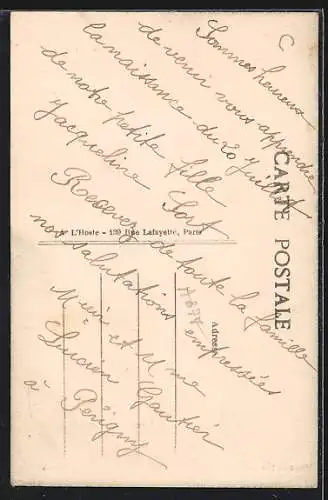 Sommes heureux
de venir vous apprendre
la naissance du 20 juillet
de notre petite fille
Jacqueline
Recevez de toute la famille
nos salutations empressées
Mr et Mme
Lucien Gautier
à Périgny
CARTE POSTALE
L'Hoste - 139 Rue Lafayette, Paris
Adresse